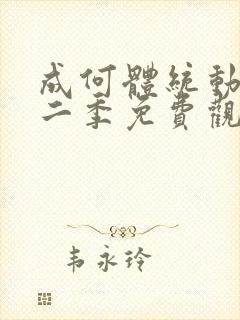 成何體統動
二季免費觀
韦永玲